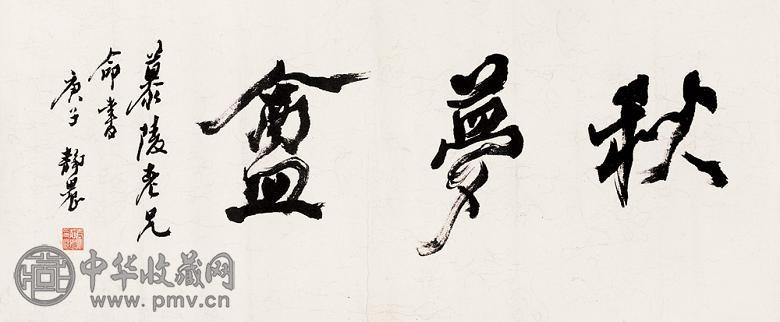 秋夢盦
慕陵老兄
命書
庚子 靜農
中华收藏网
www.pmv.cn